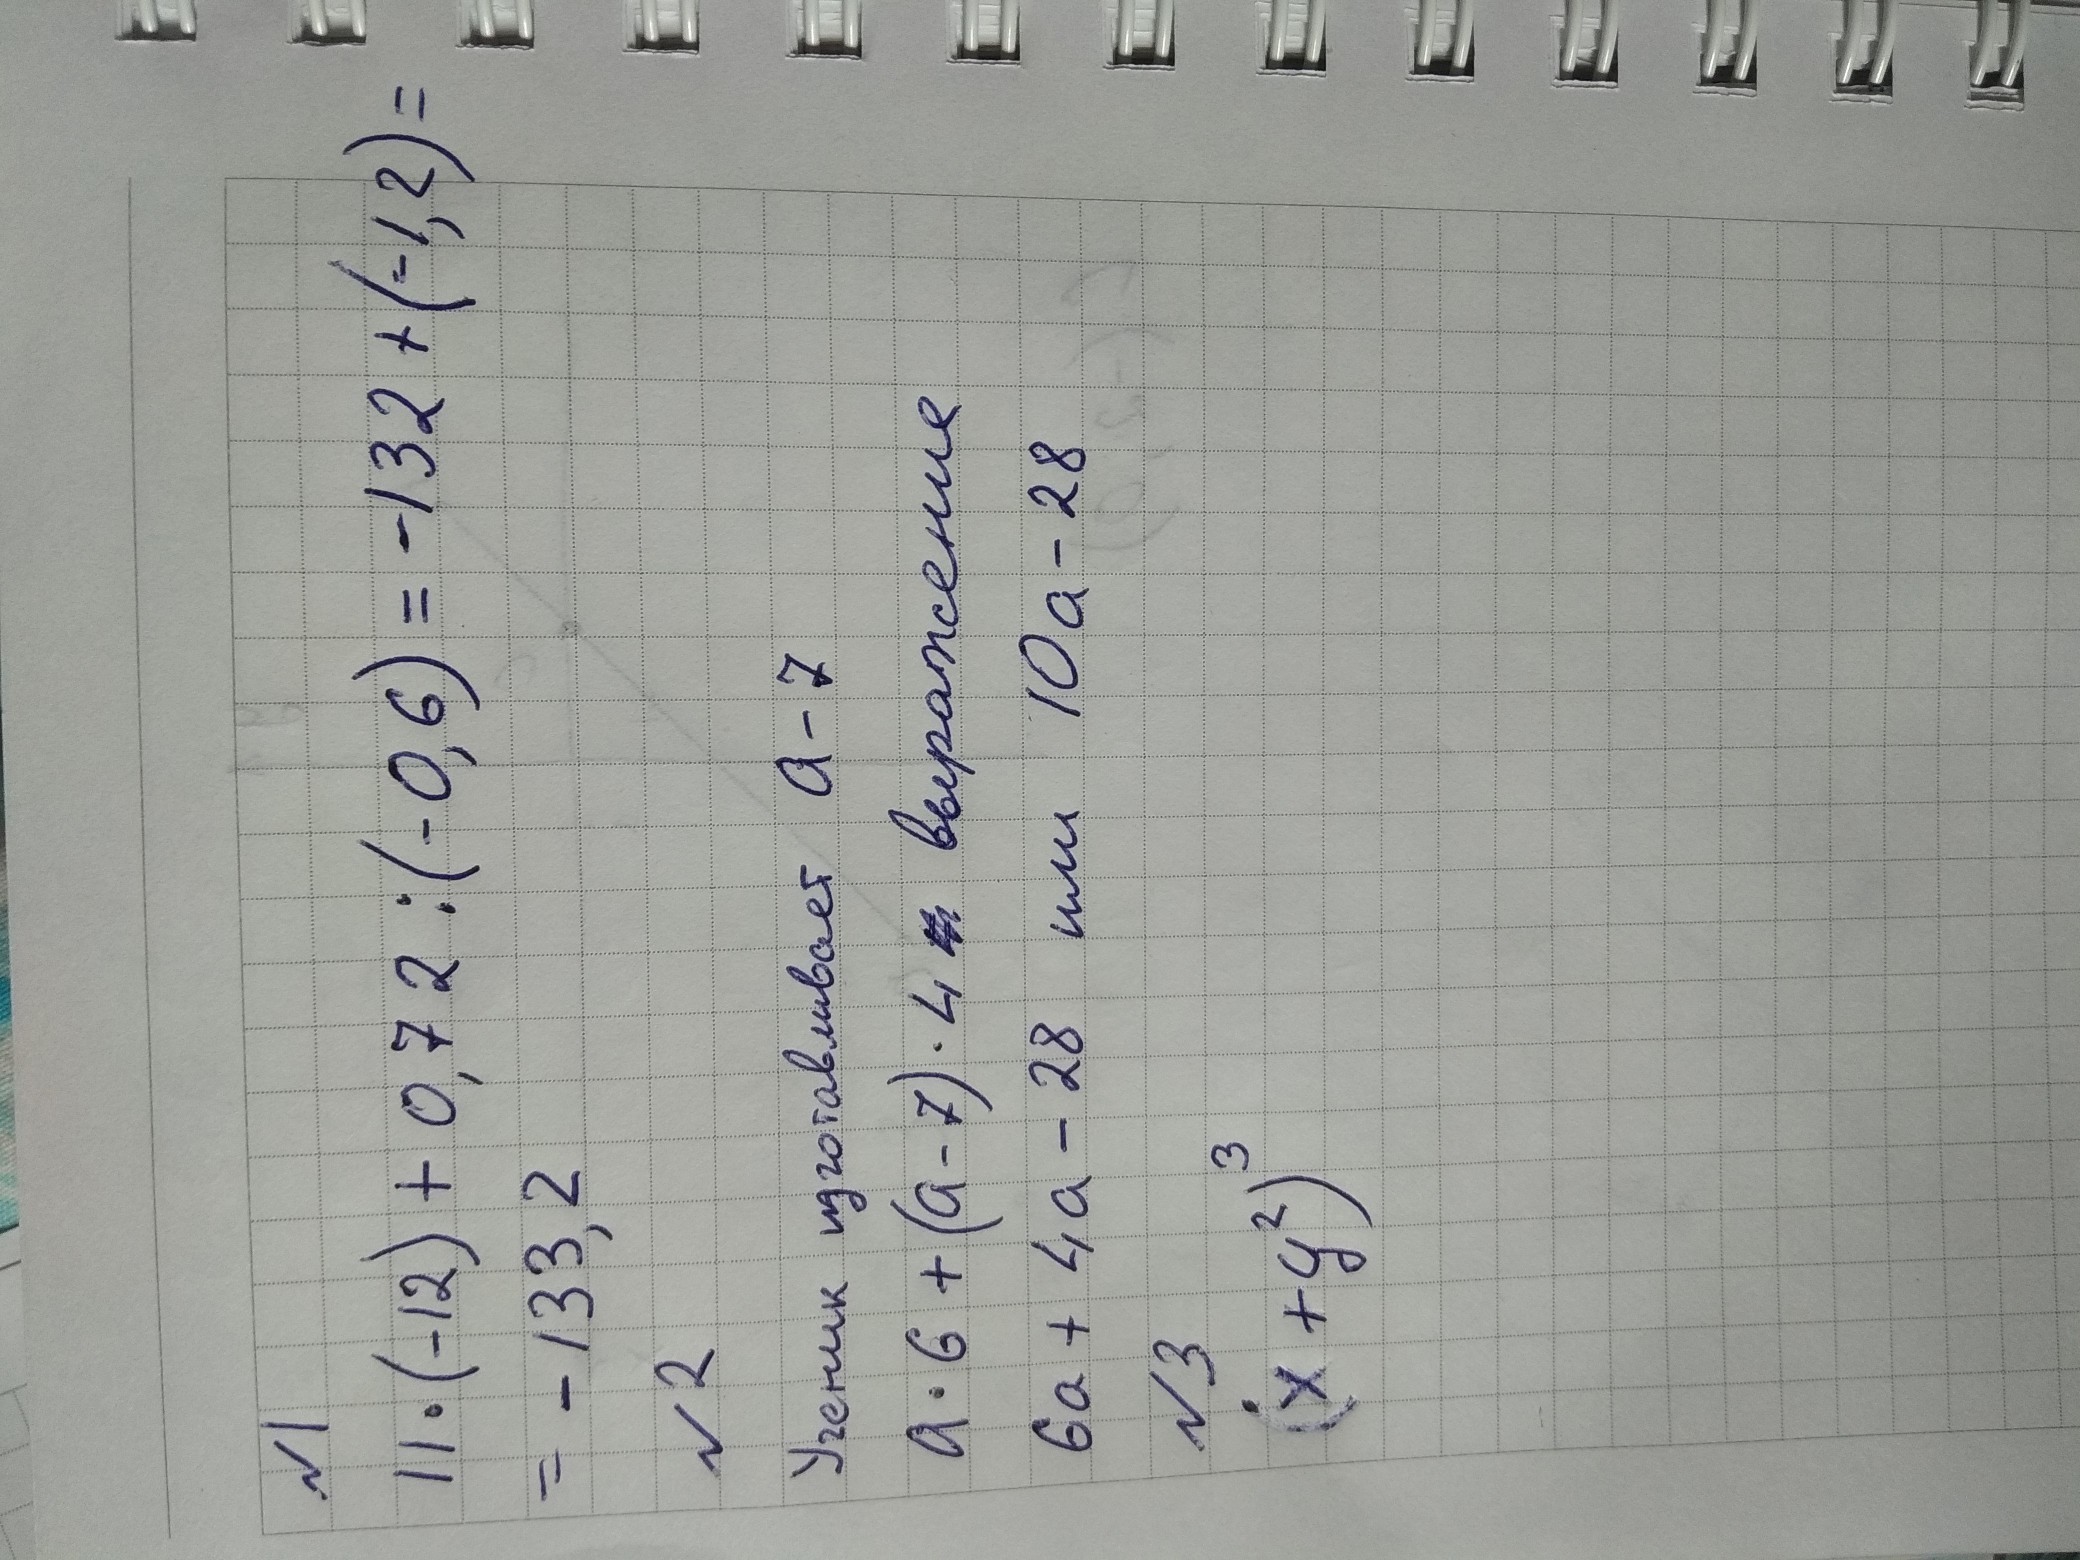 №1
11·(-12)+0,72:(-0,6)=-132+(-1,2)=
=-133,2
№2
Ученик изготавливает а-7
а·6+(а-7)·4 выражение
6а+4а-28 или 10а-28
№3
(х+у²)³